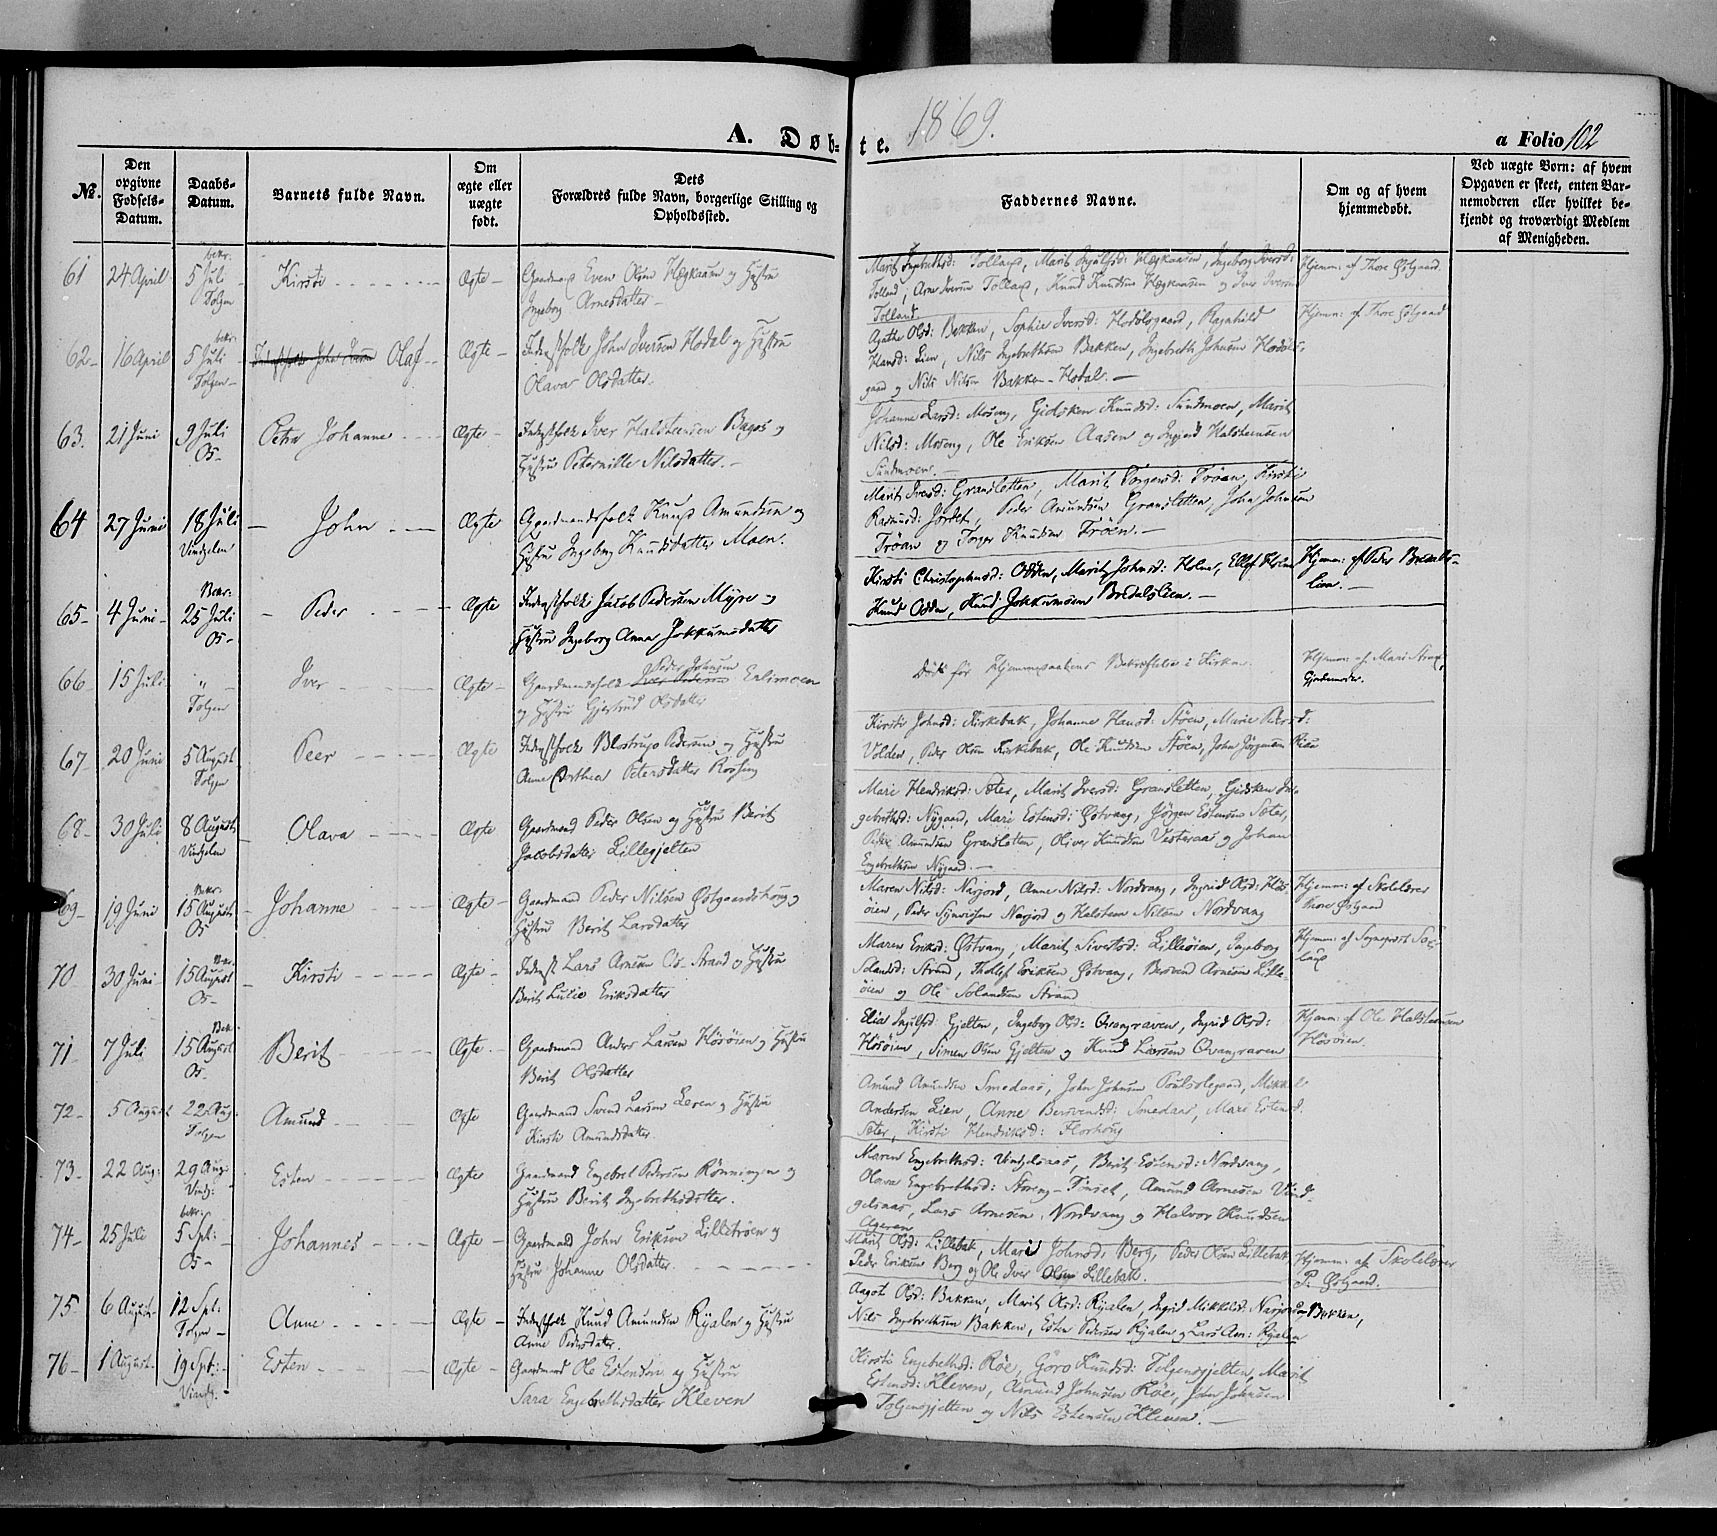 A. Døb- te. 1869.
a Folio 102
№.
Den opgivne Fødsels-Datum.
Daabs-Datum.
Barnets fulde Navn.
Om ægte eller uægte født.
Dets Forældres fulde Navn, borgerlige Stilling og Opholdssted.
Faddernes Navne.
Om og af hvem hjemmedøbt.
Ved uægte Born: af hvem Opgaven er skeet, enten Barnemoderen eller hvilket bekjendt og troværdigt Medlem af Menigheden.
61 24 April bekr. 5 Juli Tolgen Kirsti Ægte
Gaardmand Even Olsen Hægkaasen og Hustru
Ingeborg Arnesdatter
Knud Knudsen Hægkaasen og Iver Iversen
Tolland
Hjemm: af Thore Østgaard
62 16 April bekr. 5 Juli Tolgen Olaf Ægte
Inderstfolk John Iversen Hodal og Hustru
Olava Olsdatter
Agathe Olsd: Bakken, Sophie Iversd: Hodølsgaard, Ragnhild
Hansd: Lien, Nils Ingebrethsen Bakken, Ingebreth Johnsen Hodøls-
gaard og Nils Nilsen Bakken-Hodal.
Hjemm: af Thore Østgaard
63. 21 Juni 9 Juli Os Petra Johanne Ægte
Inderstfolk Iver Halsteensen Bagos og
Hustru Peternille Nilsdatter.
Johanne Larsd: Moseng, Gidsken Knudsd: Sundmoen, Marit
Nilsd: Moseng, Ole Eriksen Aasen og Ingjerd Halsteensen
Sundmoen.
64 27 Juni 18 Juli Vindgelen John Ægte
Gaardmandsfolk Knud Amundsen og
Hustru Ingeborg Knudsdatter Moen.
Marit Iversd: Gransletten, Marit Torgersd: Trøan, Kirsti
Rasmusd: Jordet, Peder Amundsen Gransletten, John Johnsen
Trøan og Torger Knudsen Trøen.
65 4 Juni Bekr: 25 Juli Os Peder Ægte
Inderstfolk Jacob Pedersen Myre og
Hustru Ingeborg Anna Jokkumsdatter
Kirsti Christophersd: Odden, Marit Johnsd: Holm, Ellef Holm
Knud Odden, Knud Jokkumsen Bredalslien.
Hjemm: af Peder Bredals-
lien.
66 15 Juli " Tolgen Iver Ægte
Gaardmandsfolk Peder Johnsen Erlimoen
og Hustru Gjertrud Olsdatter
Døde før Hjemmedaabens Bekræftelse i Kirken
Hjemm: af Mari Strand,
Gjordemoder.
67 20 Juni 5 August Tolgen Peer Ægte
Inderstfolk Blostrup Pedersen og Hustru
Anne Dorthea Petersdatter
Kirsti Johnsd: Kirkebak, Johanne Hansd: Støen, Marie Petersd:
Volden, Peder Olsen Kirkebak, Ole Knudsen Støen, John Jørgensen
68 30 Juli 8 August Vindgelen Olava Ægte
Gaardmand Peder Olsen og Hustru Berit
Jacobsdatter Lillegjelten
Mari Hendriksd: Sæter, Marit Iversd: Gransletten, Gidsken In-
gebrethsd: Nygaard, Mari Estensd: Østvang, Jørgen Estensen Sæter,
Peder Amundsen Gransletten, Oliver Knudsen Vesteraas og Johan
Engebrethsen Nygaard.
69 19 Juni Bekr: 15 August Os Johanne Ægte
Gaardmand Peder Nilsen Østgaardshoug og
Hustru Berit Larsdatter
Maren Nilsd: Narjord, Anne Nilsd: Nordvang, Ingrid Olsd: Hös-
öien, Peder Narjord og Halsteen Nilsen Nordvang
Hjemm: af Skolelærer
Thore Østgaard
70 30 Juni Bekr. 15 August Os Kirsti Ægte
Inderst Lars Arnesen Os-Strand og Hustru
Berit Lutie Eriksdatter
Maren Eriksd: Østvang, Marit Sivertsd: Lilleöien, Ingeborg
Eriksen Østvang, Arnesen Lille-
öien og Ole Strand
71 7 Juli Bekr. 15 August Os Berit Ægte
Gaardmand Anders Larsen Hösöien og Hustru
Berit Olsdatter
Elia Ingulfsd: Gjelten, Ingeborg Olsd: Qvangraven, Ingrid Olsd:
Hösöien, Simen Olsen Gjelten og Knud Larsen Qvangraven
Hjemm: af Ole Halsteensen
Hösöien.
72 5 August 22 Aug: Tolgen Amund Ægte
Gaardmand Svend Larsen Leren og Hustru
Kirsti Amundsdatter
Amund Amundsen Smedaas, John Johnsen, Mikkel
Andersen Lien, Anne Smedaas, Mari Estensd.
Sæter, Kirsti Hendriksd: Florhoug
73 22 Aug: 29 Aug: Vindg: Esten Ægte
Gaardmand Engebret Pedersen Rønningen og
Hustru Berit Ingebrethsdatter.
Maren Engebrethsd: Vindgelsaas, Berit Estensd: Nordvang,
Olava Engebrethsd: Støreng-Tønset, Amund Arnesen Vind-
gelsaas, Lars Arnesen Nordvang og Halvor Knudsen
Ageren
74 25 Juli bekr: 5 Spt: Os Johannes Ægte
Gaardmand John Eriksen Lilletrøen og
Hustru Johanne Olsdatter.
Marit Olsd: Lillebak, Mari Johnsd: Berg, Peder Olsen Lillebak
Peder Eriksen Berg og Ole Iver Olsen Lillebak.
Hjemm: af Skolelærer
P. Østgaard.
75 6 August 12 Spt: Tolgen Anne Ægte
Inderstfolk Knud Amundsen Ryalen og Hustru
Anne Pedersdatter.
Aagot Olsd: Bakken, Marit Olsd: Ryalen, Ingrid Mikkelsd: Narjordsbakken,
Nils Ingebrethsen Bakken, Esten Pedersen Ryalen og Lars Am: Ryalen
76 1 August 19 Spt: Vindg. Esten Ægte
Gaardmand Ole Estensen og Hustru
Sara Engebrethsdatter Kleven
Kirsti Engebrethsd: Röe, Göro Knudsd: Tolgensgjelten, Marit
Estensd: Kleven, Amund Johnsen Röe, John Johnsen
Tolgensgjelten og Nils Estensen Kleven.